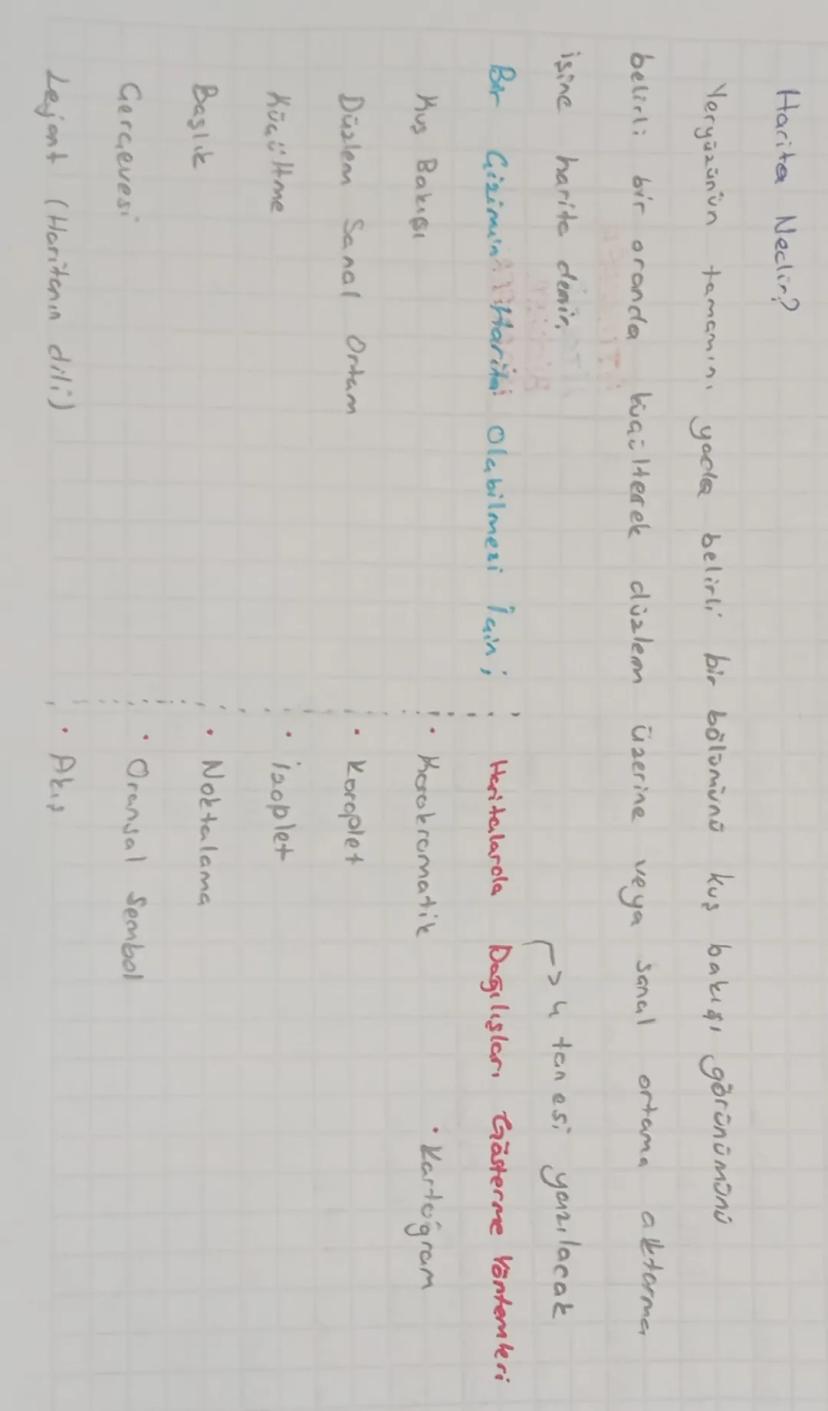 Harita Nedir?
Yeryüzünün tamamını yada belirli bir bölümünü kuş bakışı görünümünü
belirli bir oranda küçülterek düzlem üzerine veya sanal ortama aktarma
işine harita denir.
4 tanesi yazılacak
Bir Çizimin Harita Olabilmesi İçin;
Haritalarda Dağılışları Gösterme Yöntemleri
Kuş Bakışı
• Korokromatik
• Kartogram
Düzlem Sanal Ortam
• Koroplet
Küçültme
• İzoplet
Başlık
• Noktalama
Çerçevesi
• Oransal Sembol
Lejant (Haritanın dili)
• Akış